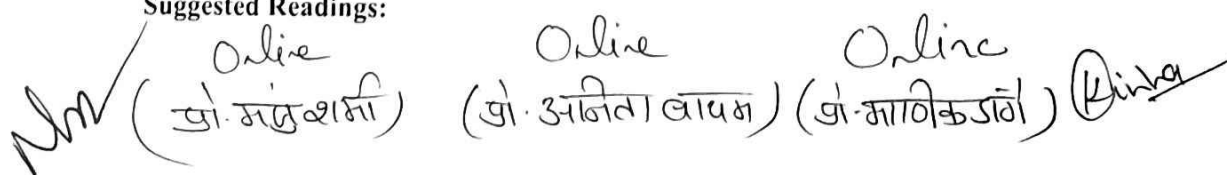 Suggested Readings:
Online Online Online
(प्रो. मंजु शर्मा) (प्रो. अनिता वायम) (प्रो. माणिक डांगे)